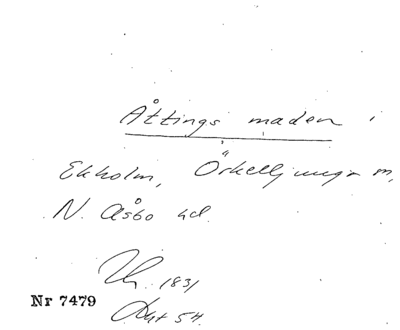 Åttings maden i
Ekholm, Örkelljunga
N. Åsbo hd.
1831
Nr 7479
54.